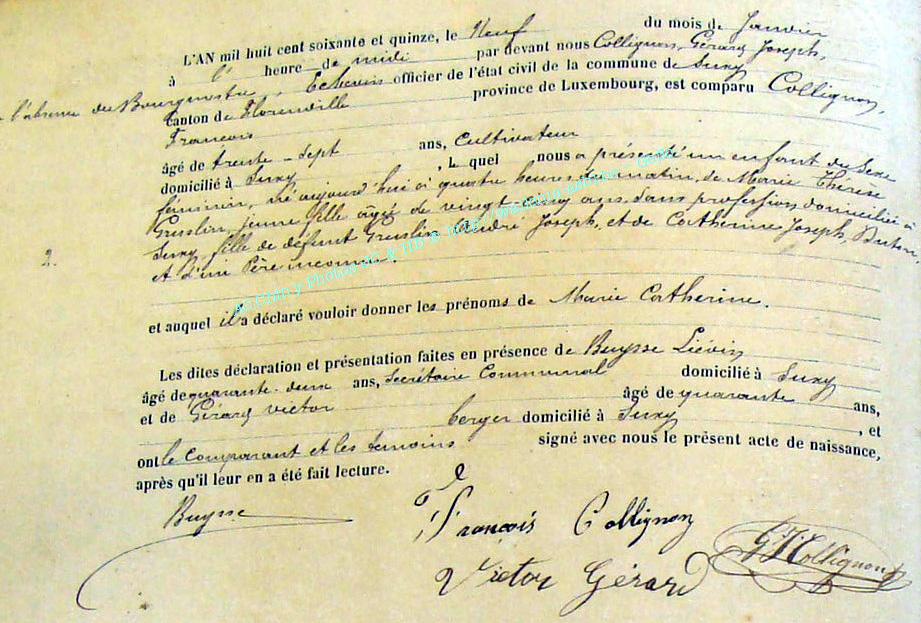 L'AN mil huit cent soixante et quinze, le Neuf du mois de Janvier
à l' heure de midi par devant nous Collignon, Gérard Joseph,
l'absence du Bourgmestre, Echevin officier de l'état civil de la commune de Suxy
canton de Florenville province de Luxembourg, est comparu Collignon,
François
âgé de trente-sept ans, Cultivateur
domicilié à Suxy, le quel nous a présenté un enfant du Sexe
féminin, né aujourd'hui à quatre heures du matin, de Marie Thérèse
Gresslin, jeune fille âgée de vingt-cinq ans, sans profession domiciliée à
Suxy, fille de défunt Gresslin André Joseph, et de Catherine Joseph,
2. et d'un Père inconnu.
et auquel il a déclaré vouloir donner les prénoms de Marie Catherine.
Les dites déclaration et présentation faites en présence de Buysse Liévin
âgé de quarante-deux ans, Secrétaire Communal domicilié à Suxy
et de Gérard Victor âgé de quarante ans,
berger domicilié à Suxy, et
ont le comparant et les témoins signé avec nous le présent acte de naissance,
après qu'il leur en a été fait lecture.
Buysse
François Collignon
GJ Collignon
Victor Gérard